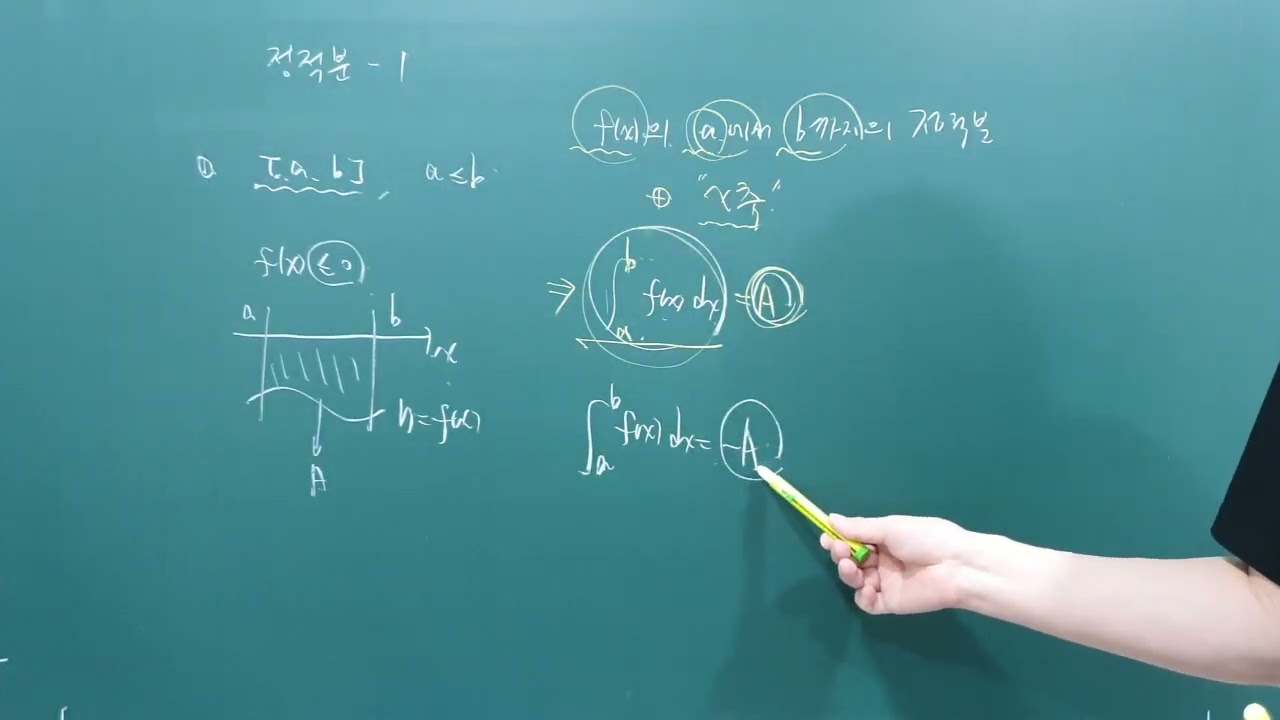 정적분 - 1
① [a, b], a ≤ b
f(x) ≤ 0
a b
x
y = f(x)
A
f(x)의 a에서 b까지의 정적분
⊕ "x축"
⇒ ∫_a^b f(x) dx = A
∫_a^b f(x) dx = -A